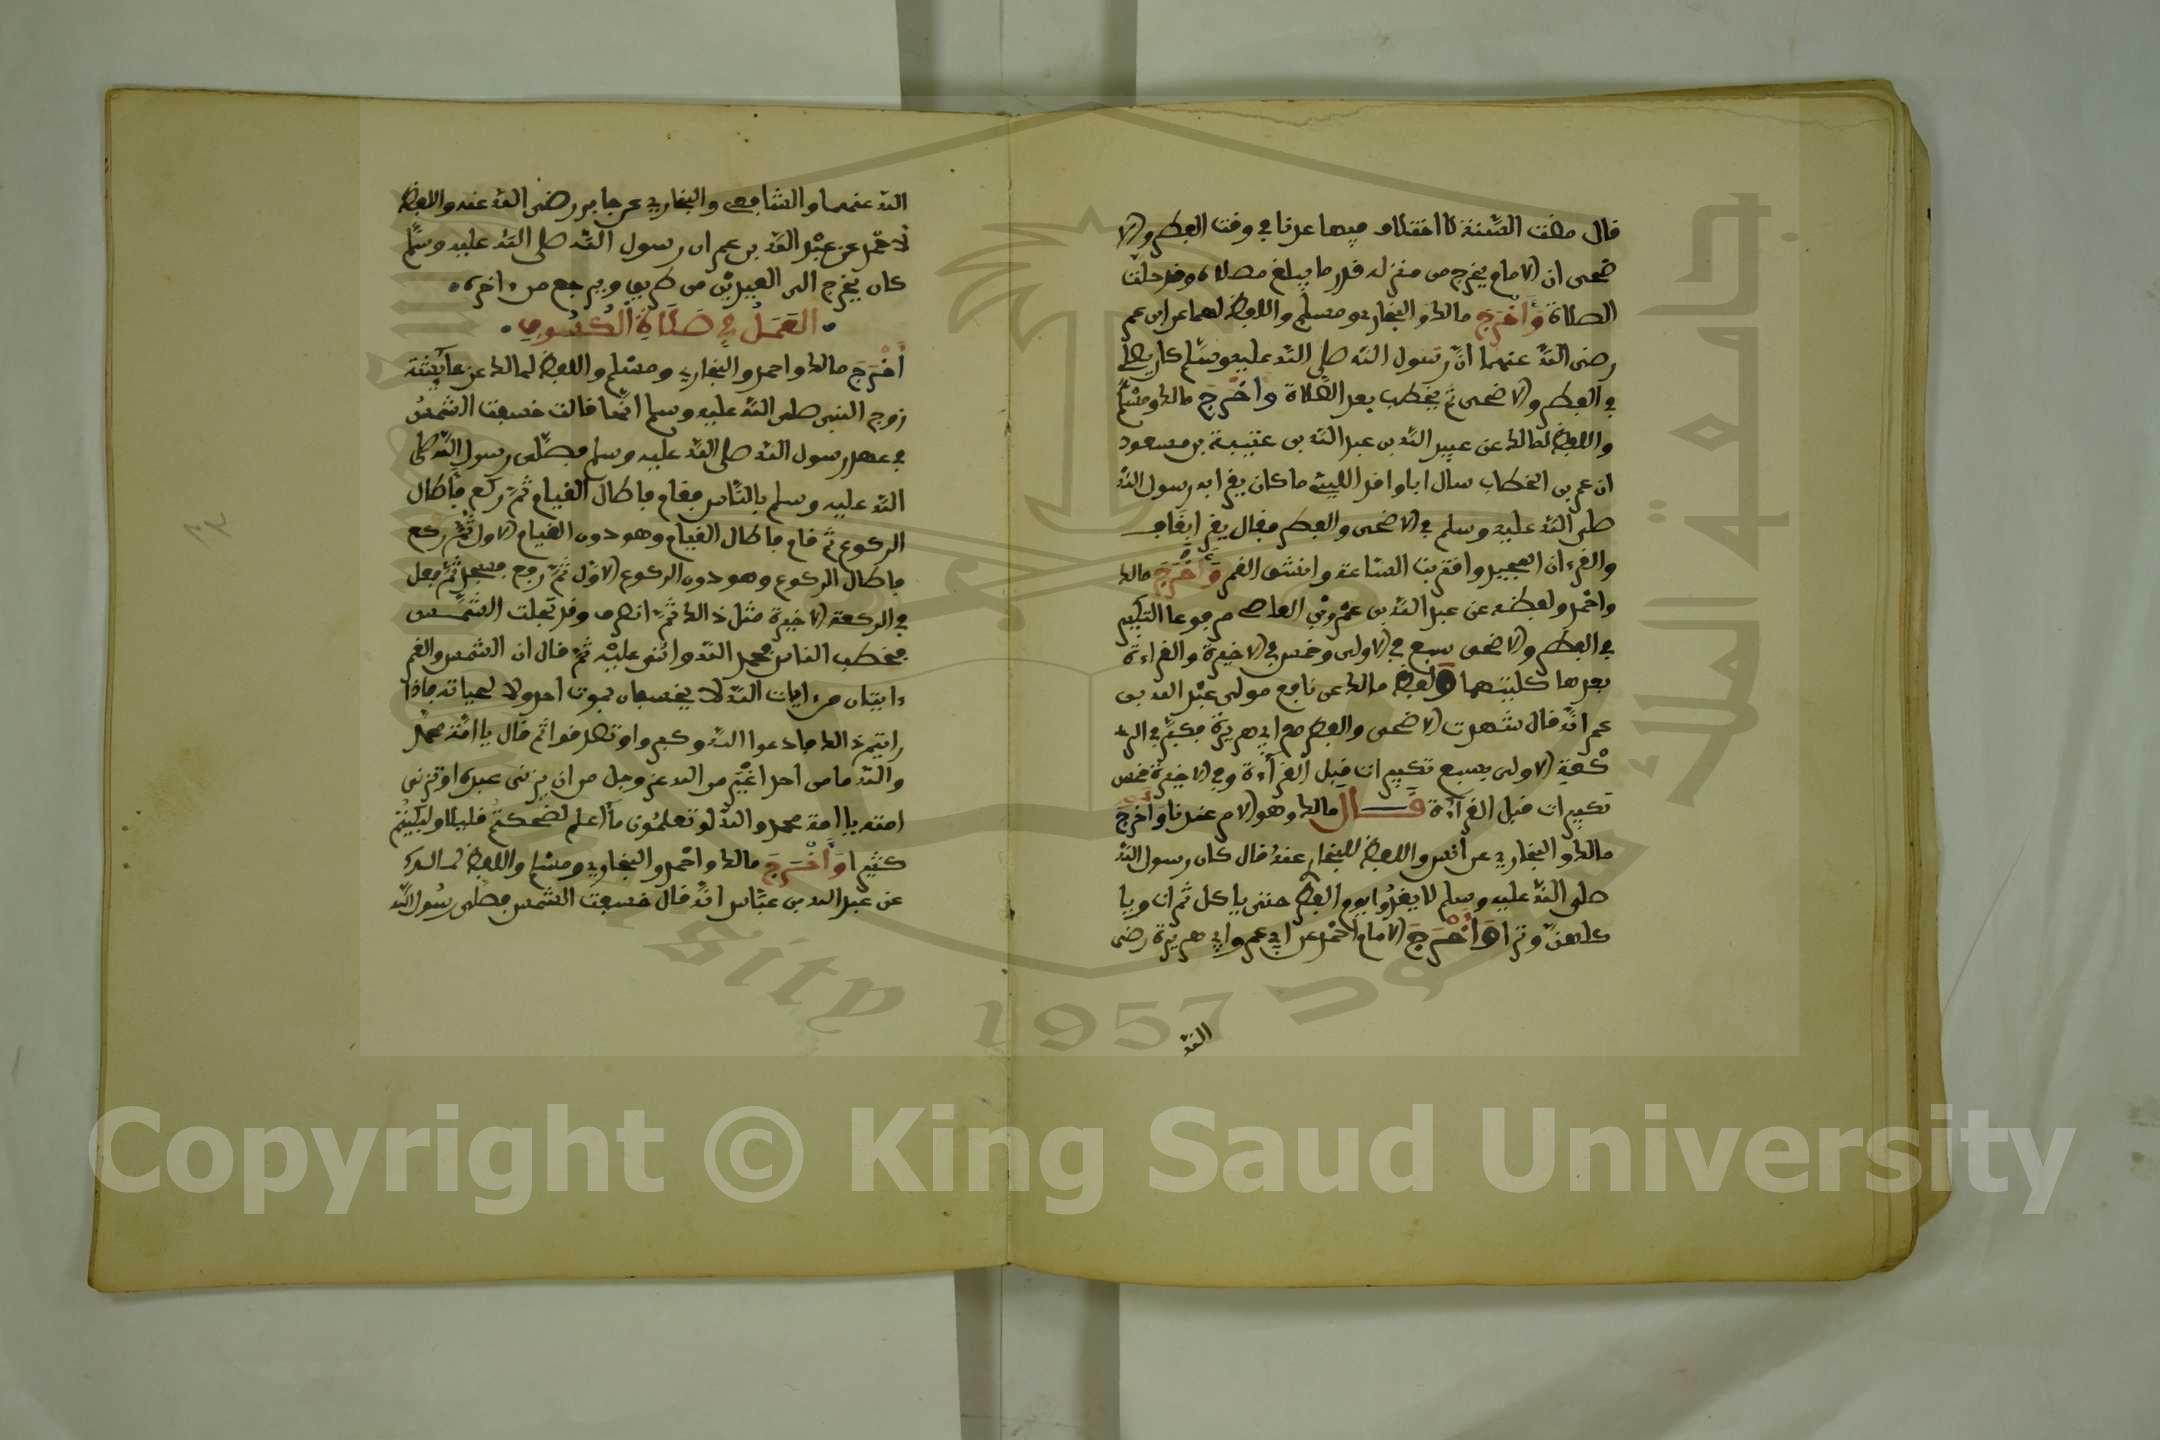 قال مضت السنة لا اختلاف فيها عندنا في وقت الفطر والا
ضحى ان الامام يخرج من منزله قدر ما يبلغ مصلاه وقد حلت
الصلاة وأخرج مالك والبخاري ومسلم واللفظ لهما عن ابن عمر
رضى الله عنهما أن رسول الله صلى الله عليه وسلم كان يصلي
في الفطر والاضحى ثم يخطب بعد الصلاة وأخرج مالك ومسلم
واللفظ لمالك عن عبيد الله بن عبد الله بن عتيبة بن مسعود
ان عمر بن الخطاب سال ابا واقد الليثي ما كان يقرا به رسول الله
صلى الله عليه وسلم في الاضحى والفطر فقال يقرا بقاف
والقرءان المجيد واقتربت الساعة وانشق القمر وأخرج مالك
واحمد ولفظه عن عبد الله بن عمرو بن العاصي مرفوعا التكبير
في الفطر والاضحى سبع في الاولى وخمس في الاخيرة والقراءة
بعدها كلتيهما ولفظ مالك عن نافع مولى عبد الله بن
عمر انه قال شهدت الاضحى والفطر مع ابي هريرة فكبر في الر
كعة الاولى بسبع تكبيرات قبل القراءة وفي الاخيرة خمس
تكبيرات قبل القراءة قال مالك وهو الامر عندنا وأخرج
مالك والبخاري عن أنس واللفظ للبخاري عنه قال كان رسول الله
صلى الله عليه وسلم لا يغدوا يوم الفطر حتى ياكل ثمرات ويا
كلهن وترا وأخرج الامام احمد عن ابي عمر وابي هريرة رضى
الله
الله عنهما والشافعي والبخاري عن جابر رضى الله عنه واللفظ
لاحمد عن عبد الله بن عمر ان رسول الله صلى الله عليه وسلم
كان يخرج الى العيدين من طريق ويرجع من اخرى
العمل في صلاة الكسوف
أخرج مالك واحمد والبخاري ومسلم واللفظ لمالك عن عايشة
زوج النبي صلى الله عليه وسلم انها قالت خسفت الشمس
في عهد رسول الله صلى الله عليه وسلم فصلى رسول الله صلى
الله عليه وسلم بالناس فقام فاطال القيام ثم ركع فأطال
الركوع ثم قام فاطال القيام وهو دون القيام الاول ثم ركع
فاطال الركوع وهو دون الركوع الاول ثم رفع فسجد ثم فعل
في الركعة الاخيرة مثل ذالك ثم انصرف وقد تجلت الشمس
فخطب الناس فحمد الله واثنى عليه ثم قال ان الشمس والقمر
ءايتان من ءايات الله لا يخسفان بموت احد ولا لحياته فاذا
رايتم ذالك فادعوا الله وكبروا وتصدقوا ثم قال يا امة محمد
والله ما من احد اغير من الله عز وجل من ان يزني عبده او تزني
امته يا امة محمد والله لو تعلمون ما أعلم لضحكتم قليلا ولبكيتم
كثيرا وأخرج مالك واحمد والبخاري ومسلم واللفظ لمالك
عن عبد الله بن عباس انه قال خسفت الشمس فصلى رسول الله
جامعة الملك سعود
1957
Copyright © King Saud University